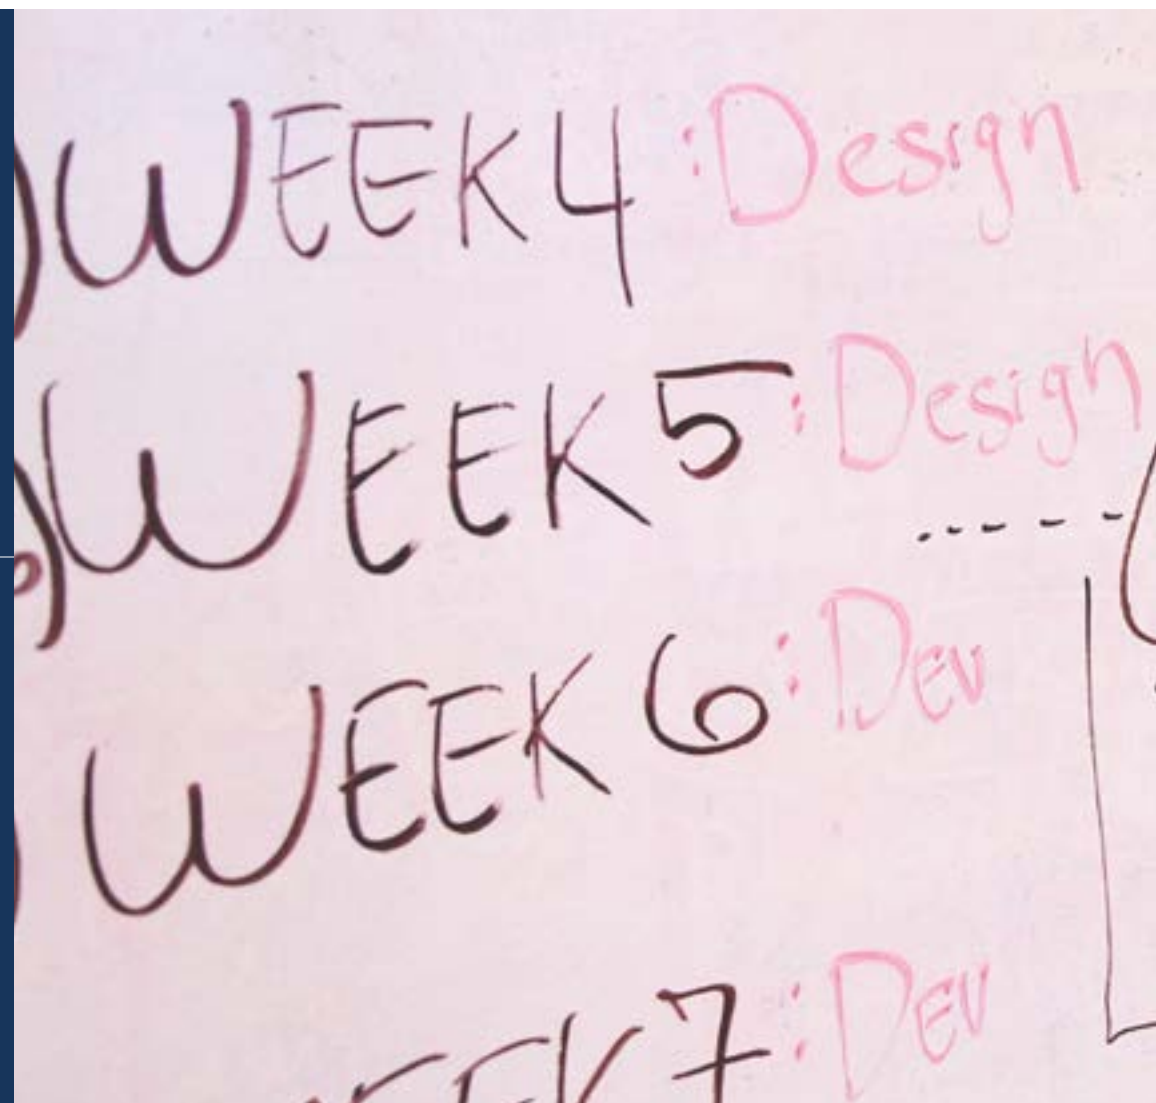 WEEK 4 : Design
WEEK 5 : Design
WEEK 6 : DEV
WEEK 7 : DEV